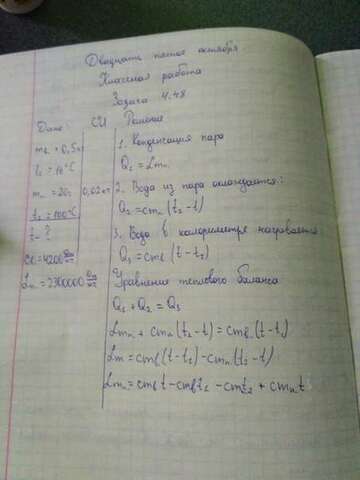 Двадцать пятое октября
Классная работа
Задача 4.48
Дано: СИ Решение
mв = 0,5 кг
t1 = 10°C
mп = 20г 0,02 кг
t2 = 100°C
t - ?
c = 4200
Lп = 2300000
1. Конденсация пара
Q1 = Lmп
2. Вода из пара охлаждается:
Q2 = cmп (t2 - t)
3. Вода в калориметре нагревается
Q3 = cmв (t - t1)
Уравнение теплового баланса
Q1 + Q2 = Q3
Lmп + cmп (t2 - t) = cmв (t - t1)
Lm = cmв (t - t1) - cmп (t2 - t)
Lmп = cmвt - cmвt1 - cmt2 + cmпt